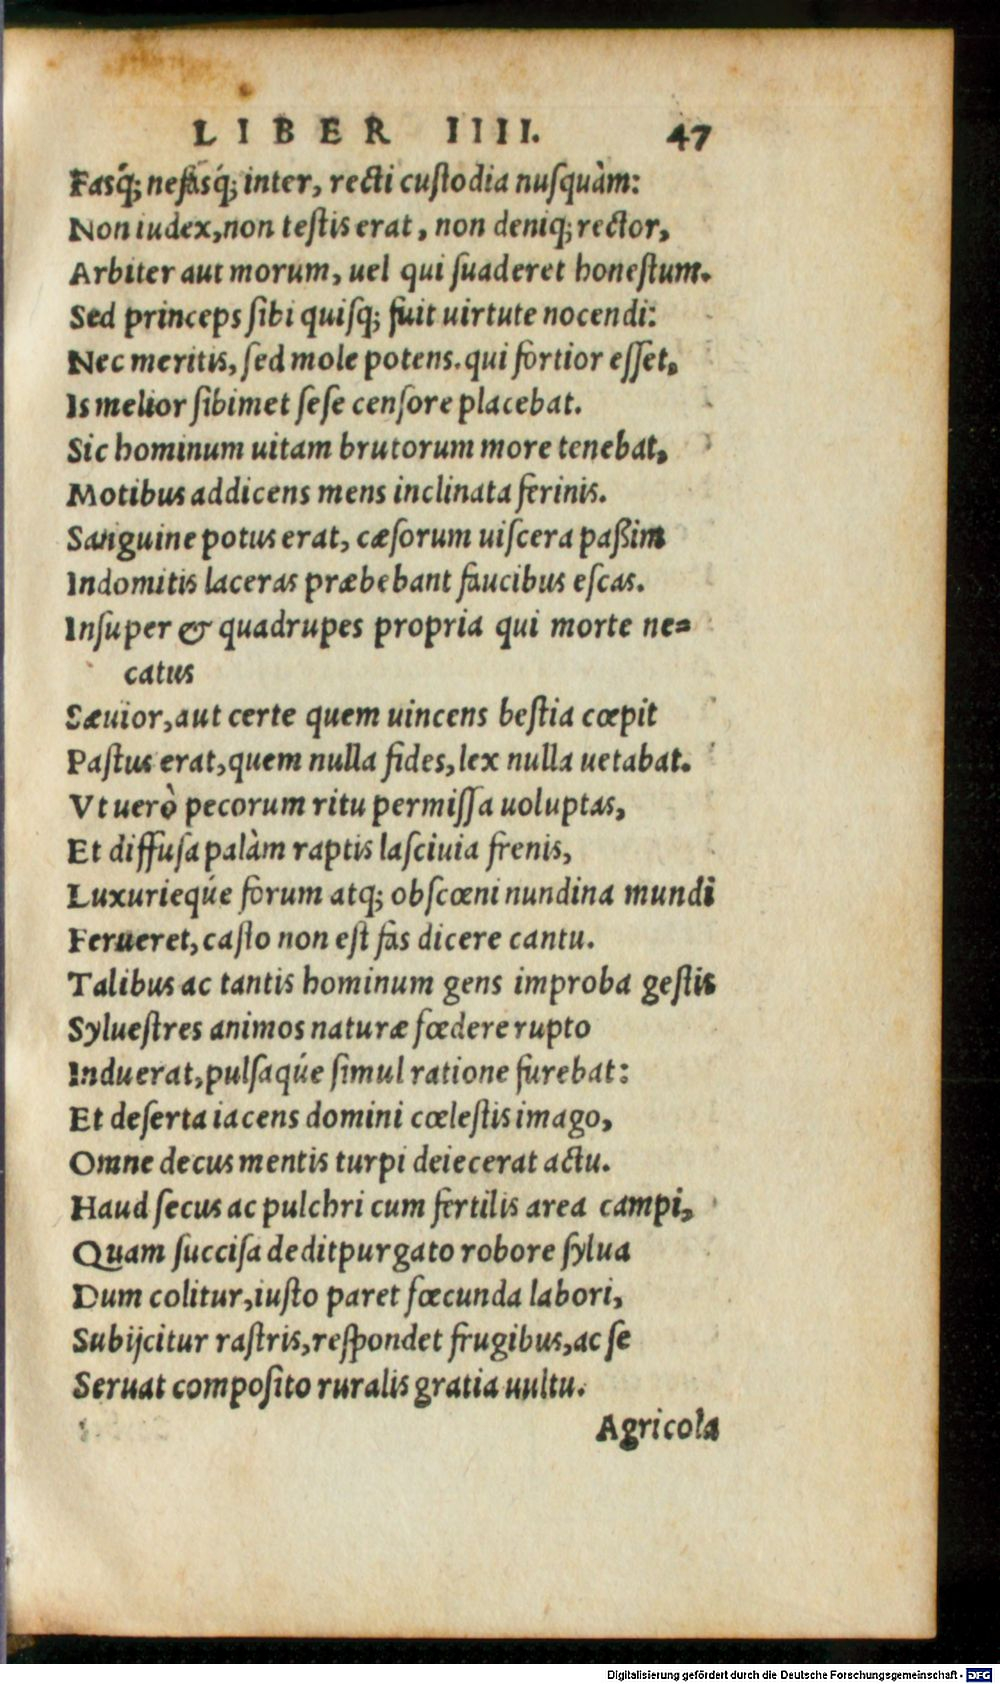 LIBER IIII. 47
Fasq́; nefasq́; inter, recti cuſtodia nuſquàm:
Non iudex, non teſtis erat, non deniq; rector,
Arbiter aut morum, uel qui ſuaderet honeſtum.
Sed princeps ſibi quiſq; fuit uirtute nocendi:
Nec meritis, ſed mole potens. qui fortior eſſet,
Is melior ſibimet ſeſe cenſore placebat.
Sic hominum uitam brutorum more tenebat,
Motibus addicens mens inclinata ferinis.
Sanguine potus erat, cæſorum uiſcera paßim
Indomitis laceras præbebant faucibus eſcas.
Inſuper & quadrupes propria qui morte ne=
catus
Sæuior, aut certe quem uincens beſtia cœpit
Paſtus erat, quem nulla fides, lex nulla uetabat.
Vt uerò pecorum ritu permiſſa uoluptas,
Et diffuſa palàm raptis laſciuia frenis,
Luxurieq́ue forum atq; obſcœni nundina mundi
Ferueret, caſto non eſt fas dicere cantu.
Talibus ac tantis hominum gens improba geſtis
Sylueſtres animos naturæ fœdere rupto
Induerat, pulſaq́ue ſimul ratione furebat:
Et deſerta iacens domini cœleſtis imago,
Omne decus mentis turpi deiecerat actu.
Haud ſecus ac pulchri cum fertilis area campi,
Quam ſucciſa dedit purgato robore ſylua
Dum colitur, iuſto paret fœcunda labori,
Subijcitur raſtris, reſpondet frugibus, ac ſe
Seruat compoſito ruralis gratia uultu.
Agricola
Digitalisierung gefördert durch die Deutsche Forschungsgemeinschaft - DFG